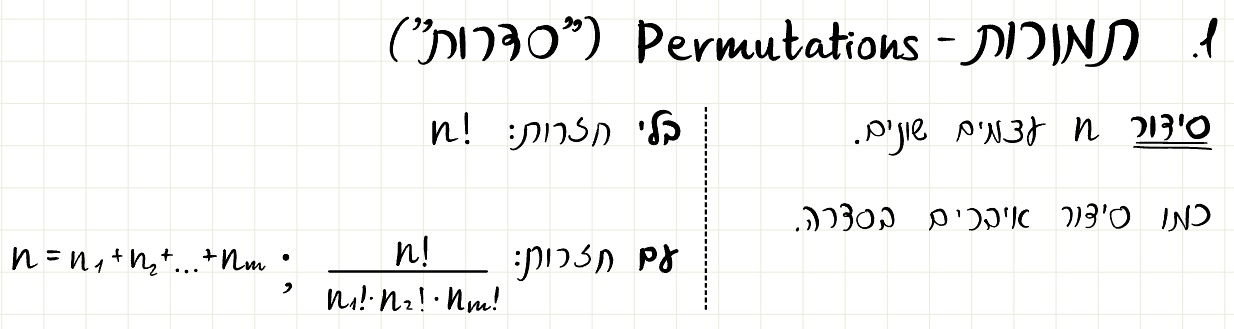 1. תמורות - Permutations ("סדרות")
סידור n עצמים שונים.
כמו סידור איברים בסדרה.
בלי חזרות: n!
עם חזרות: n! / n₁!·n₂!·nₘ! ; n = n₁+n₂+...+nₘ